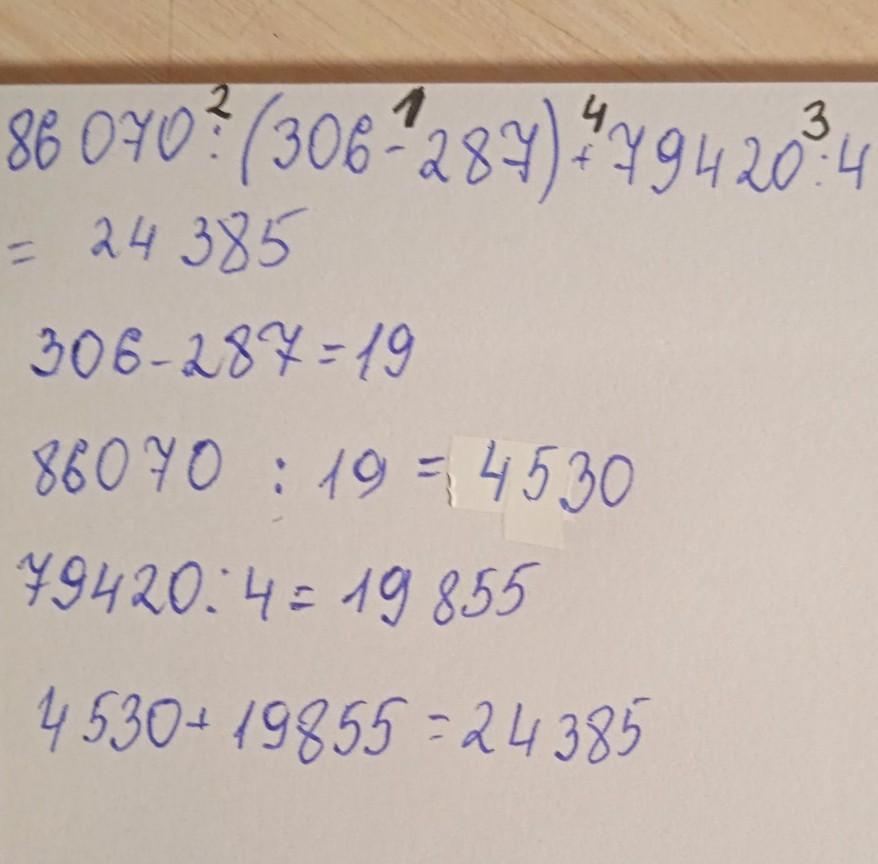 86 070 : (306 - 287) + 79420 : 4
2 1 4 3
= 24 385
306 - 287 = 19
86070 : 19 = 4530
79420 : 4 = 19 855
4530 + 19855 = 24385